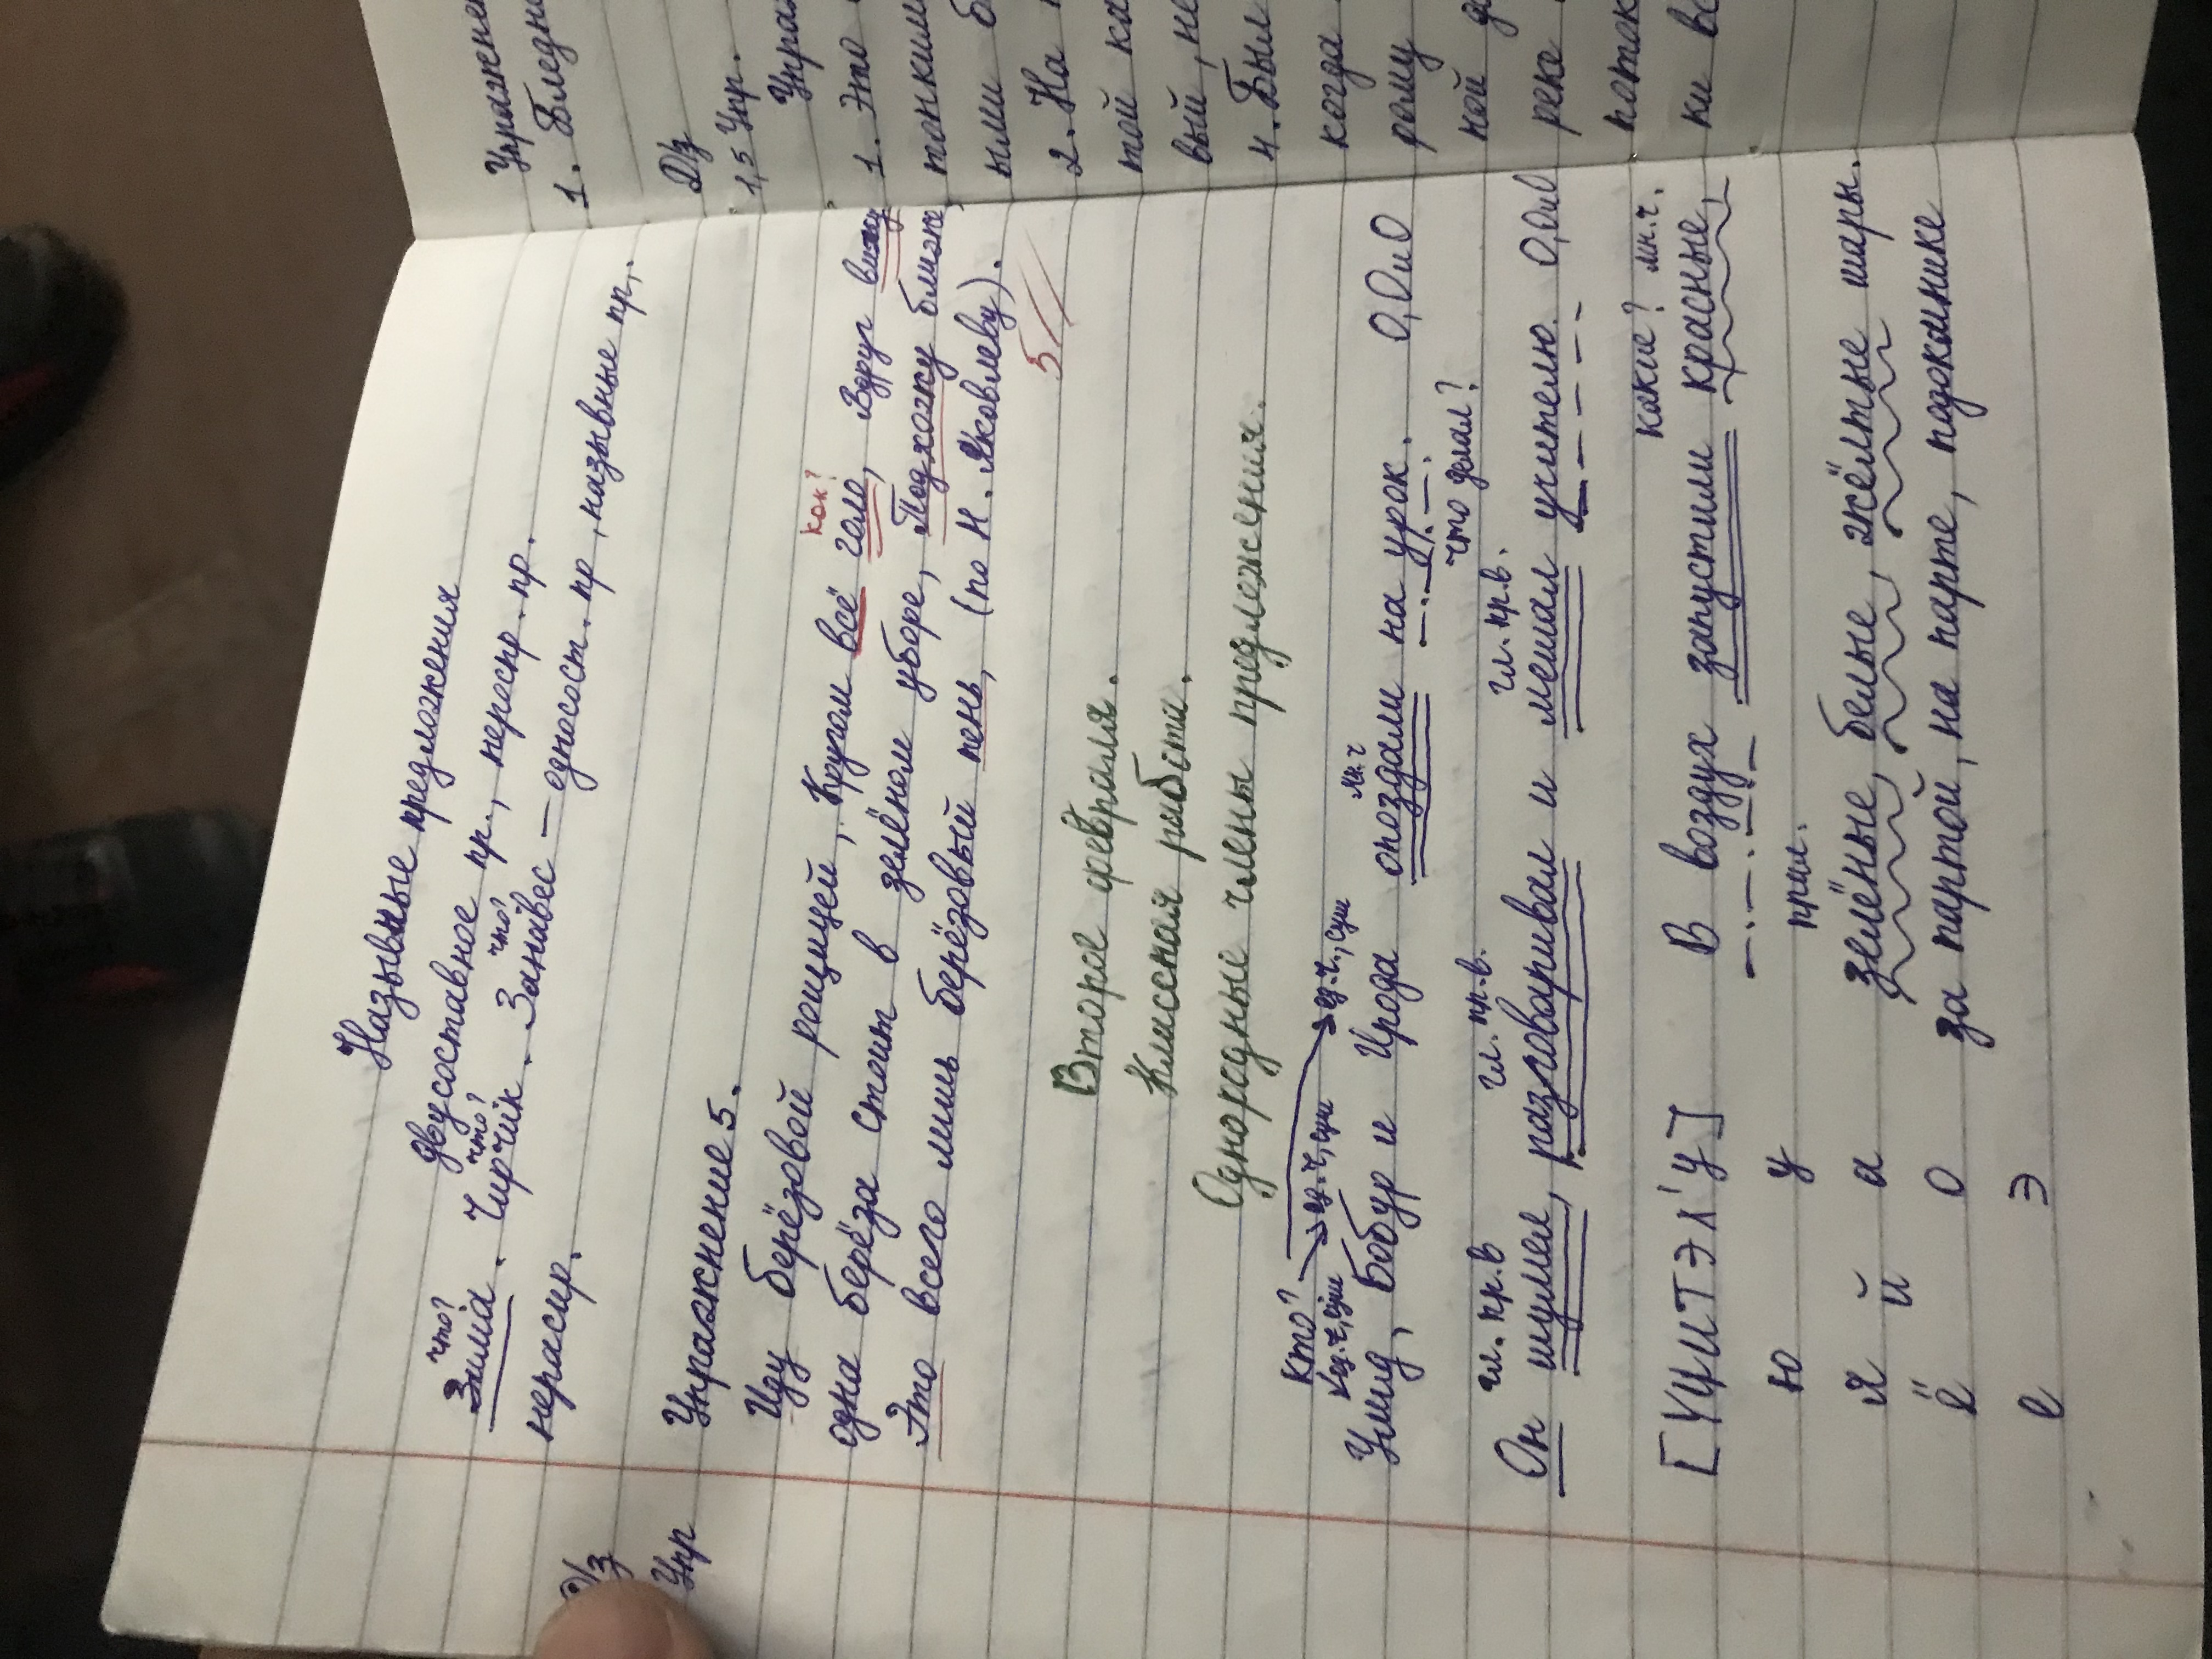 Назывные предложения
двусоставное пр., нероспр. пр.
что? что? что?
Зима. Чирчик. Занавес – односост. пр, назывные пр,.
нераспр.
Д/з
Упр
Упражнение 5.
Иду берёзовой рощицей, Кругом всё голо, Вдруг вижу
как?
одна берёза стоит в зелёном уборе, Подхожу ближе
Это всего лишь берёзовый пень, (по Н. Яковлеву).
5//
Второе февраля.
Классная работа.
Однородные члены предложения.
кто?
ед.ч, сущ ед.ч, сущ ед.ч., сущ мн.ч
Умид, Бобур и Ирода опоздали на урок. О,О и О
что делал?
гл. пр.в гл. пр.в. гл. пр.в.
Он шумел, разговаривал и мешал учителю. О,О и О
какие? мн.ч.
[УЧИТЭЛ'У] В воздух запустили красные,
ю у прил.
я й а зелёные, белые, жёлтые шары.
ё о за партой, на парте, подоконнике
е э
Упражнен
1. Бледн
Д/з
1,5 Упр.
Упраж
1. Это
тонким
ыми б
2. На
той ка
вый, не
4. Был
когда
рому
ной до
реке
поток
ки во